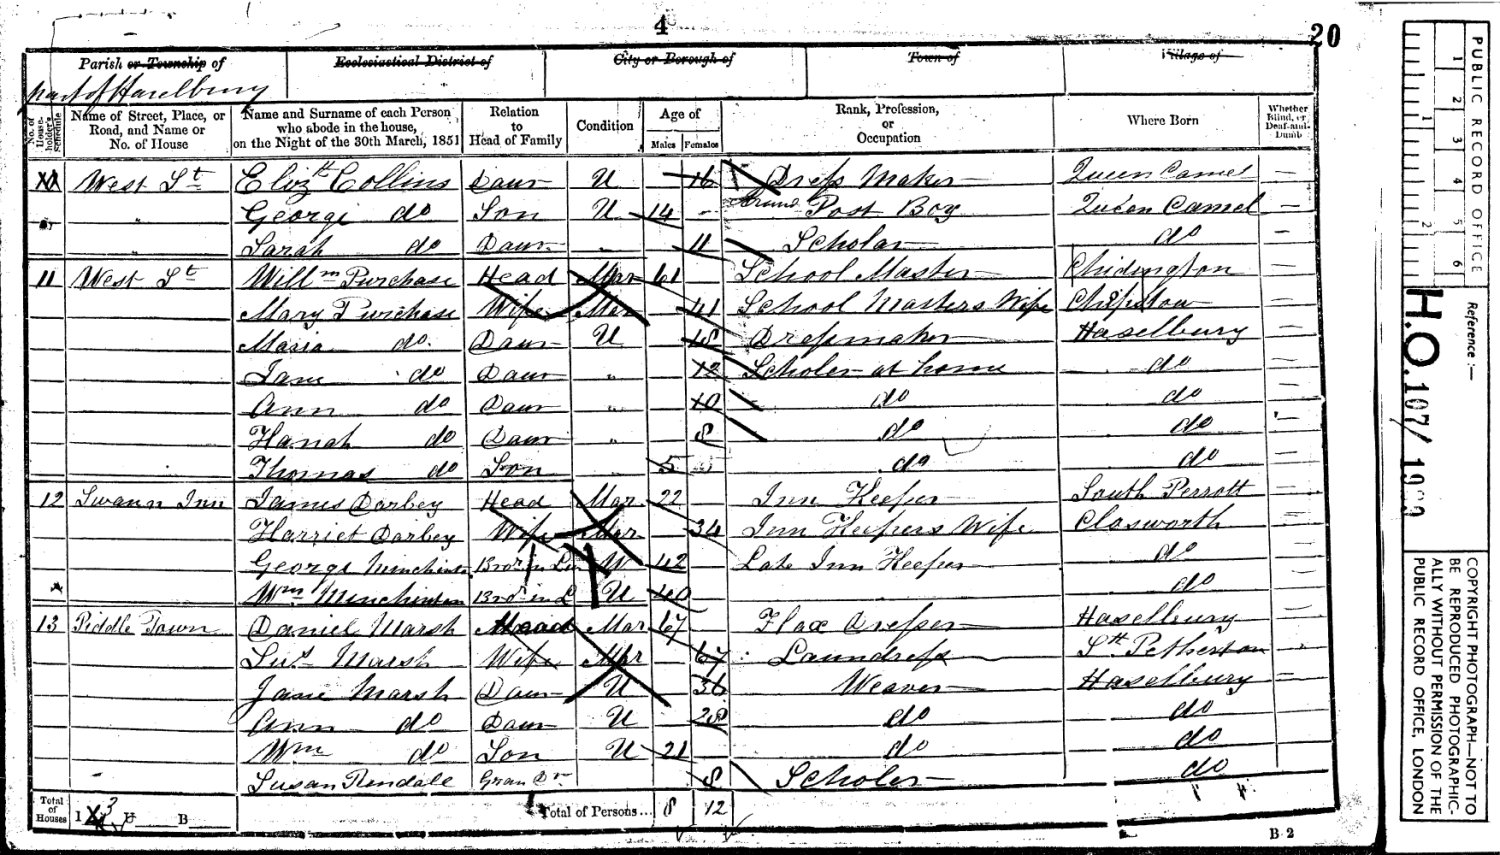 4
20
Parish or Township of
Ecclesiastical District of
City or Borough of
Town of
Village of
part of Haselbury
No. of House-holder's Schedule
Name of Street, Place, or Road, and Name or No. of House
Name and Surname of each Person who abode in the house, on the Night of the 30th March, 1851
Relation to Head of Family
Condition
Age of
Males
Females
Rank, Profession, or Occupation
Where Born
Whether Blind, or Deaf-and-Dumb
West St Elizth Collins Daur U 16 Dress Maker Queen Camel
" George do Son U 14 - Post Boy Queen Camel
" Sarah do Daur " 11 Scholar do
11 West St Willm Purchase Head Mar 61 School Master Chidington
Mary Purchase Wife Mar 41 School Masters Wife
Maria do Daur U 18 Dressmaker Haselbury
Jane do Daur " 12 Scholar at home do
Ann do Daur " 10 do do
Hanah do Daur " 8 do do
Thomas do Son 5 do do
12 Swann Inn James Darbey Head Mar 22 Inn Keeper South Perrott
Harriet Darbey Wife Mar 34 Inn Keepers Wife Closworth
George Minchinton Bror in Law 42 Late Inn Keeper do
Wm Minchinton Bror in L U 40 do
13 Piddle Town Daniel Marsh Head Mar 67 Flax Dresser Haselbury
Susn Marsh Wife Mar 67 Laundress Sth Petherton
Jane Marsh Daur U 36 Weaver Haselbury
Ann do Daur U 28 do do
Wm do Son U 21 do do
Susan Rendale Gran Dr 8 Scholar do
Total of Houses
1 3 U B
Total of Persons... 8 12
B 2
PUBLIC RECORD OFFICE
1 2 3 4 5 6
1 2
Reference :—
H.O. 107/
COPYRIGHT PHOTOGRAPH—NOT TO BE REPRODUCED PHOTOGRAPHIC-ALLY WITHOUT PERMISSION OF THE PUBLIC RECORD OFFICE, LONDON